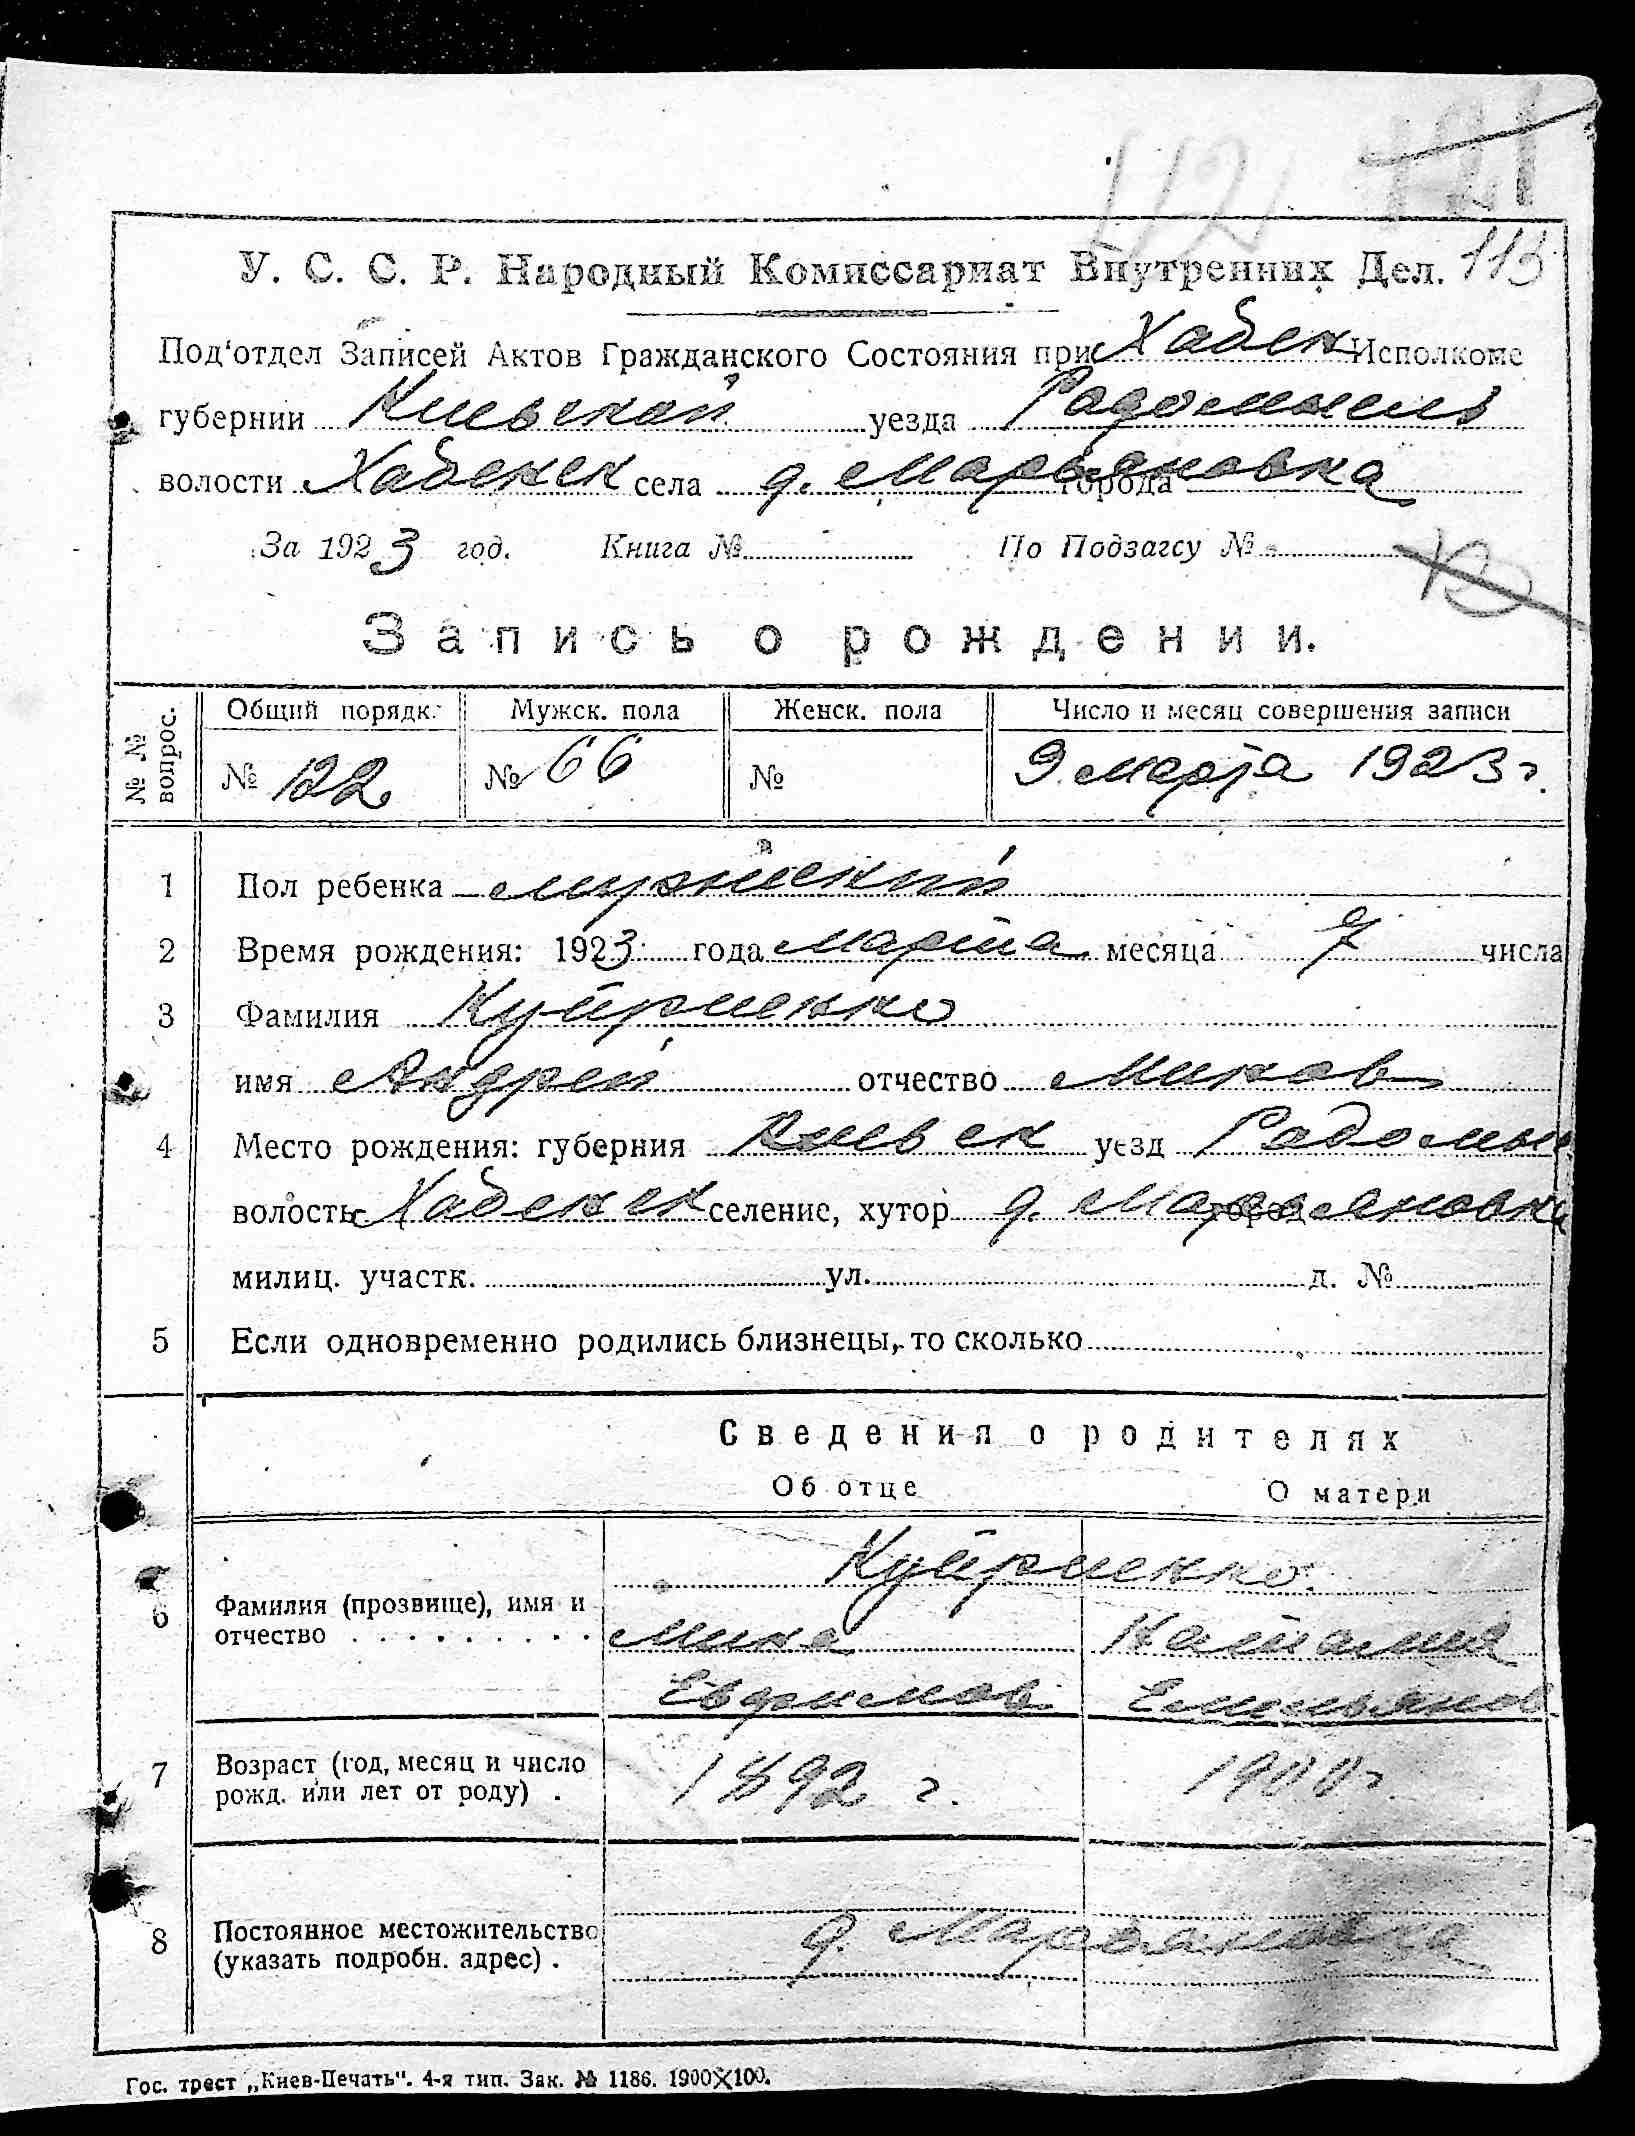 112 121
У. С. С. Р. Народный Комиссариат Внутренних Дел. 113
Под'отдел Записей Актов Гражданского Состояния при Хабен Исполкоме
губернии Киевской уезда Радомысль
волости Хабенск села д. Марьяновка города
За 1923 год. Книга № По Подзагсу №
Запись о рождении.
№ № вопрос. Общий порядк. Мужск. пола Женск. пола Число и месяц совершения записи
№ 122 № 66 № 9 марта 1923 г.
1 Пол ребенка мужеский
2 Время рождения: 1923 года марта месяца 7 числа
3 Фамилия Куприенко
имя Андрей отчество Миков
4 Место рождения: губерния Киевск уезд Радомыс
волость Хабенск селение, хутор д. Марьяновка город
милиц. участк. ул. д. №
5 Если одновременно родились близнецы, то сколько
Сведения о родителях
Об отце О матери
Куприенко
6 Фамилия (прозвище), имя и
отчество Мика Наталия
Евфимов Емильянов
7 Возраст (год, месяц и число
рожд. или лет от роду) . 1892 г. 1900 г.
8 Постоянное местожительство
(указать подробн. адрес) . д. Марьяновка
Гос. трест „Киев-Печать". 4-я тип. Зак. № 1186. 1900×100.